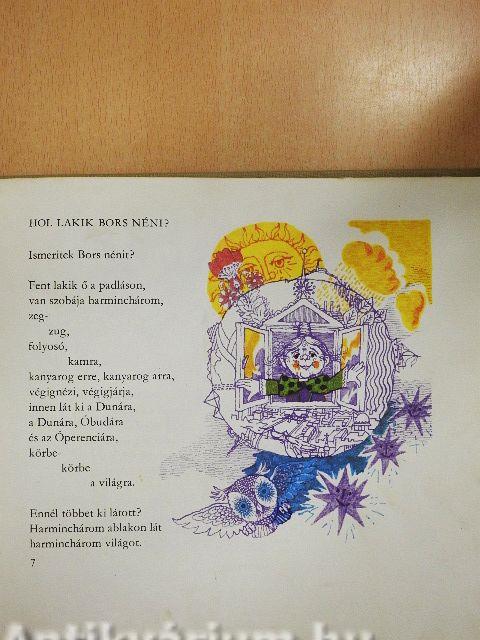 HOL LAKIK BORS NÉNI?
Ismeritek Bors nénit?
Fent lakik ő a padláson,
van szobája harminchárom,
zeg-
zug,
folyosó,
kamra,
kanyarog erre, kanyarog arra,
végignézi, végigjárja,
innen lát ki a Dunára,
a Dunára, Óbudára
és az Óperenciára,
körbe-
körbe
a világra.
Ennél többet ki látott?
Harminchárom ablakon lát
harminchárom világot.
7
Antikvárium.hu